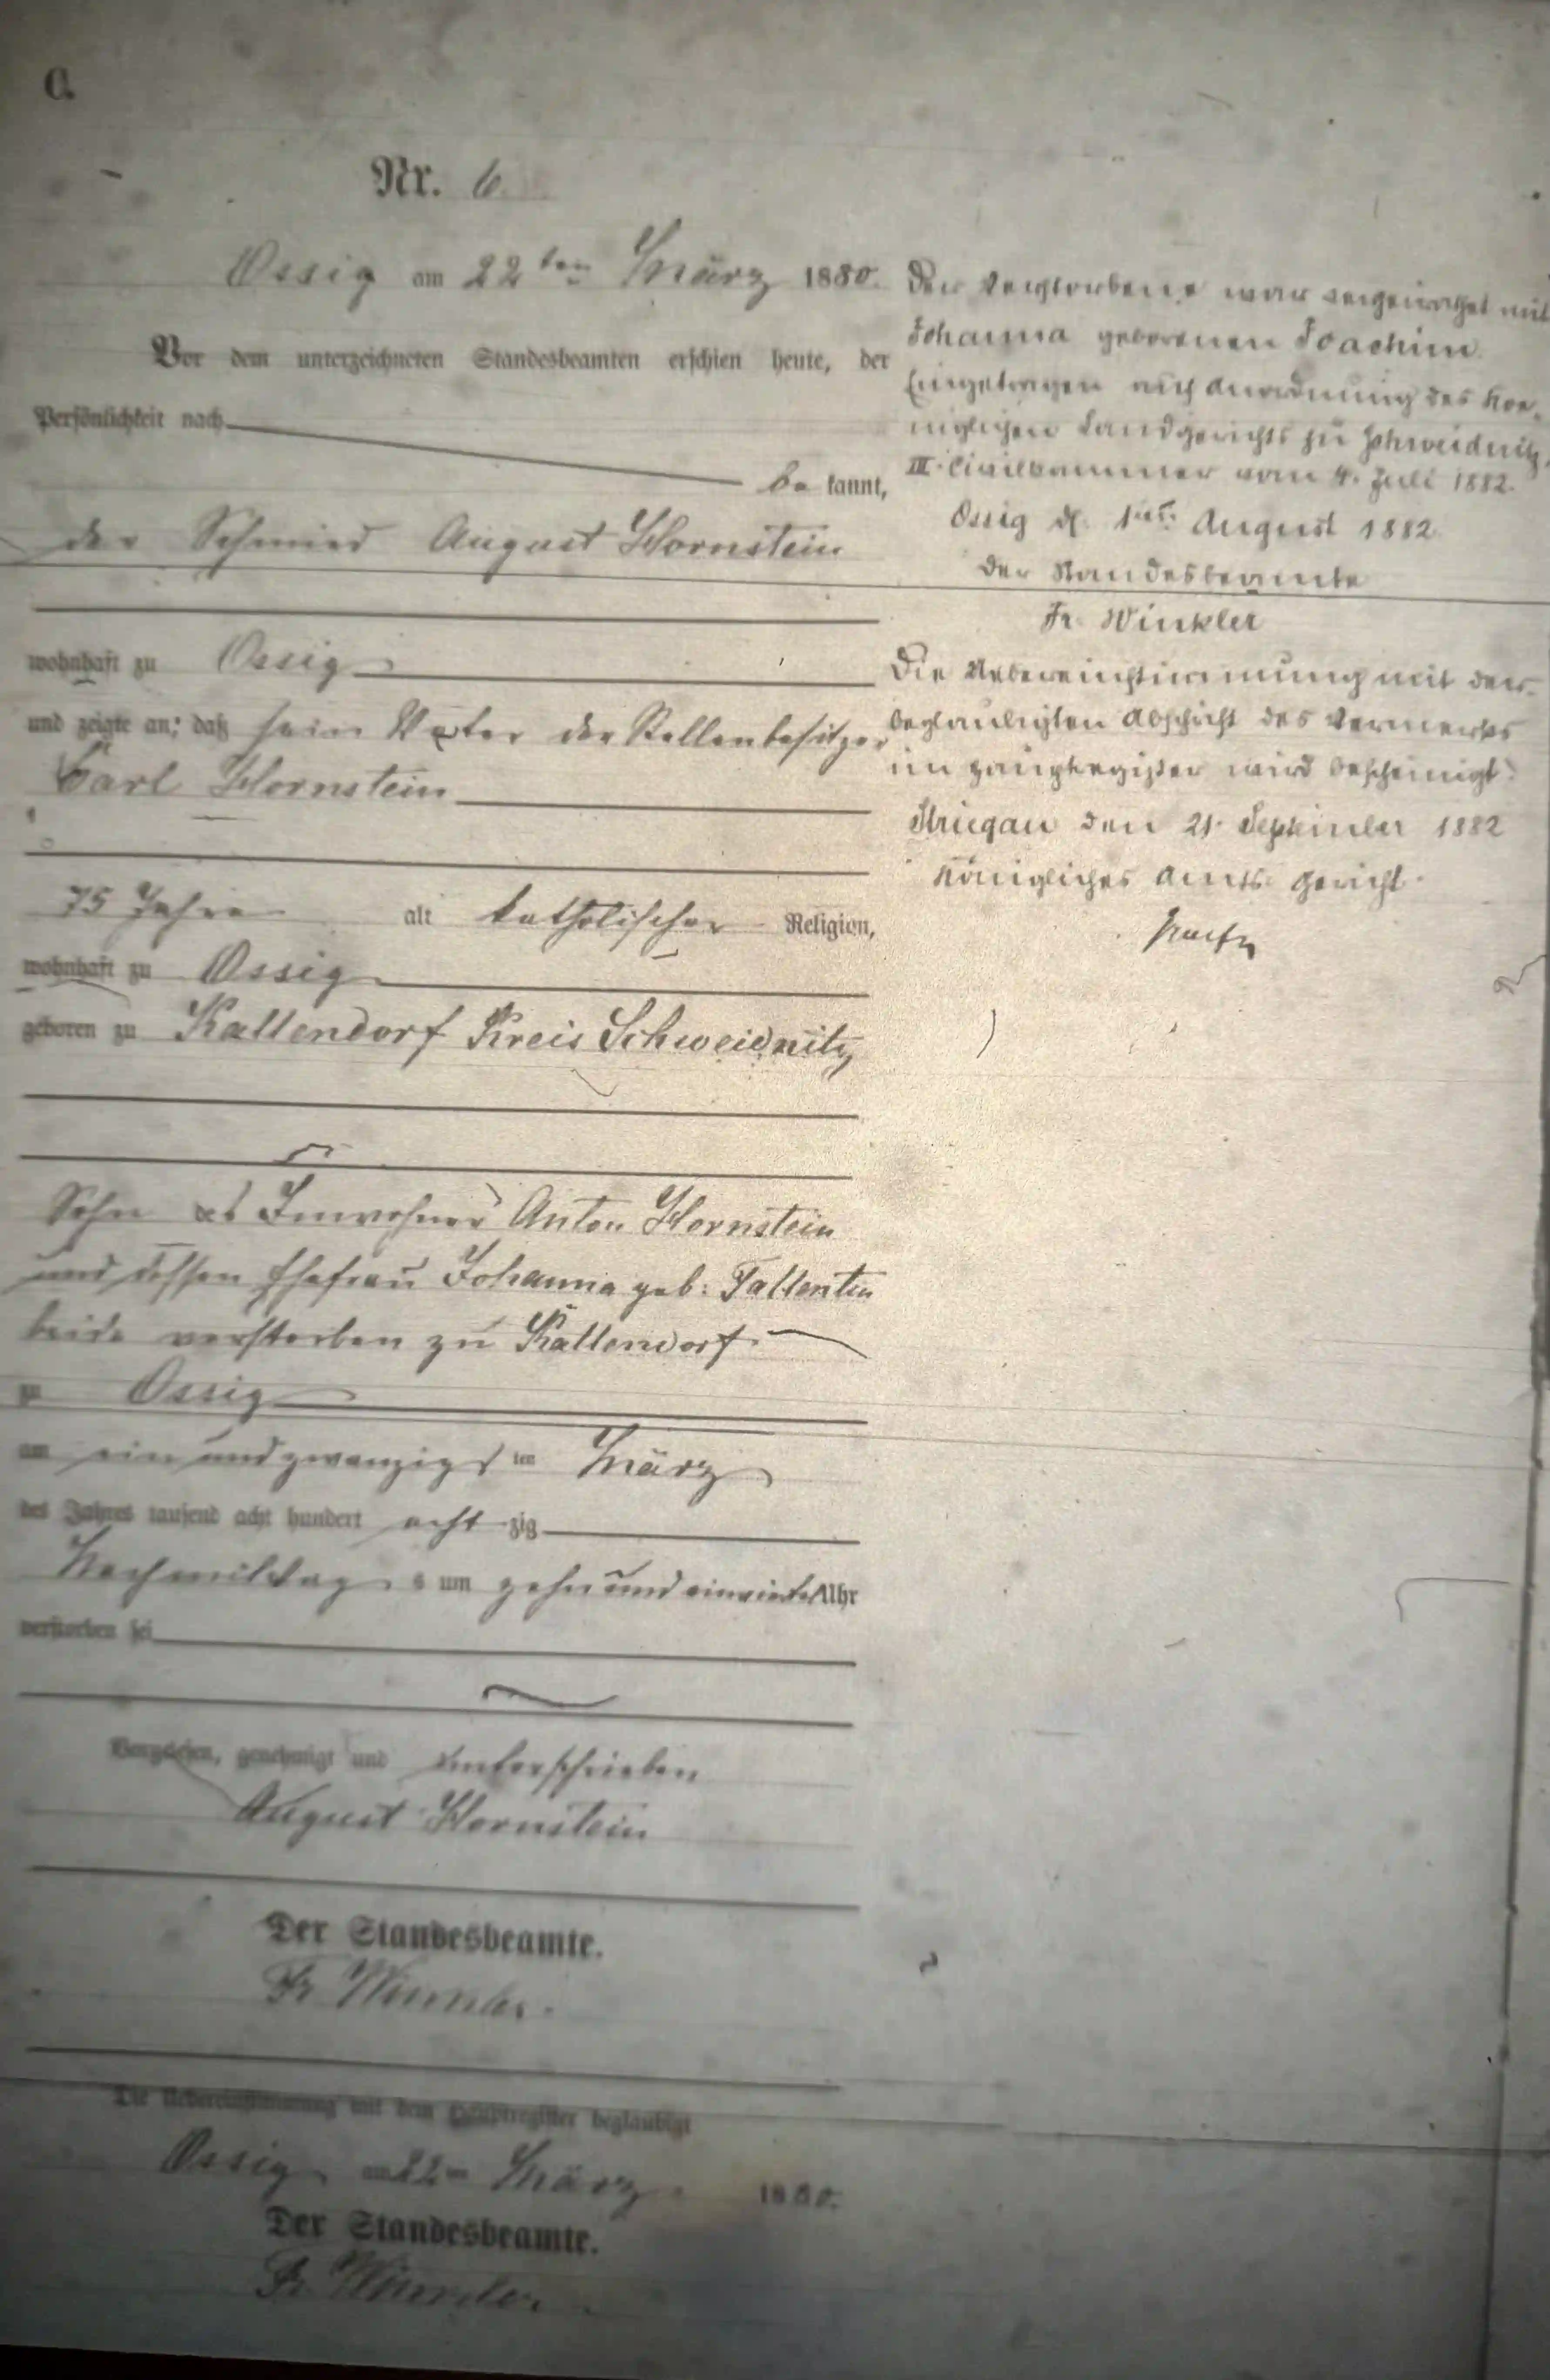 C.
Nr. 6.
Ossig am 22ten März 1880.
Vor dem unterzeichneten Standesbeamten erschien heute, der
Persönlichkeit nach
be kannt,
der Schmied August Hornstein
wohnhaft zu Ossig
und zeigte an, daß sein Vater der Stellenbesitzer
Carl Hornstein
75 Jahre alt katholischer Religion,
wohnhaft zu Ossig
geboren zu Kallendorf Kreis Schweidnitz
Sohn des Inwohner Anton Hornstein
und dessen Ehefrau Johanna geb:
beide verstorben zu Kallendorf
zu Ossig
am ein und zwanzigsten März
des Jahres tausend acht hundert acht zig
Nachmittags um zehn und einviertel Uhr
verstorben sei
Vorgelesen, genehmigt und unterschrieben
August Hornstein
Der Standesbeamte.
Fr Winkler.
Die Uebereinstimmung mit dem Hauptregister beglaubigt
Ossig am 22ten März 1880.
Der Standesbeamte.
Fr Winkler.
Der Verstorbene war verheirathet mit
Johanna geborenen Joachim.
Eingetragen auf Anordnung des Koe-
niglichen Landgerichts zu Schweidnitz,
III. Civilkammer vom 4. Juli 1882.
Ossig d. 1ten August 1882
Der Standesbeamte
Fr. Winkler
Die Uebereinstimmung mit der
beglaubigten Abschrift des Vermerkes
im Hauptregister wird bescheinigt.
Striegau den 21. September 1882
Königliches Amts Gericht.